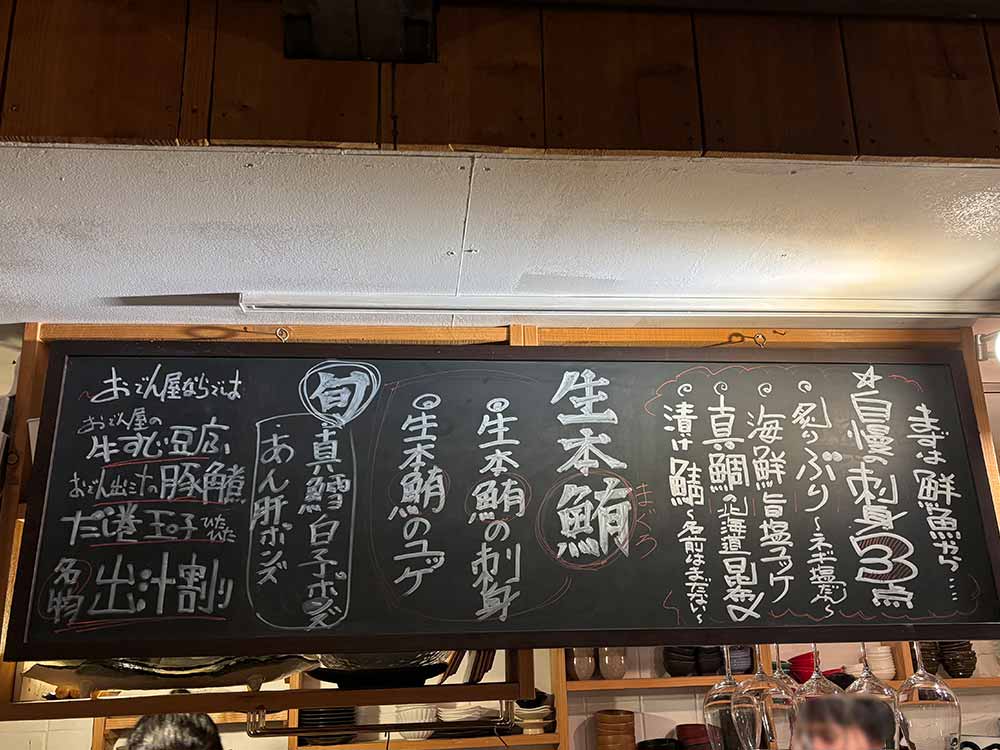 まずは鮮魚から…
☆自慢の刺身3点
炙りぶり～ネギ塩だれ～
海鮮旨塩ユッケ
真鯛の北海道昆布〆
漬け鯖～名前はまだない～
生本鮪
まぐろ
生本鮪の刺身
生本鮪のユッケ
旬
真鱈白子ポン酢
あん肝ポンズ
～おでん屋ならでは
おでん屋の
牛すじ豆腐
おでん出汁の豚角煮
だし巻玉子ひたひた
名物 出汁割り